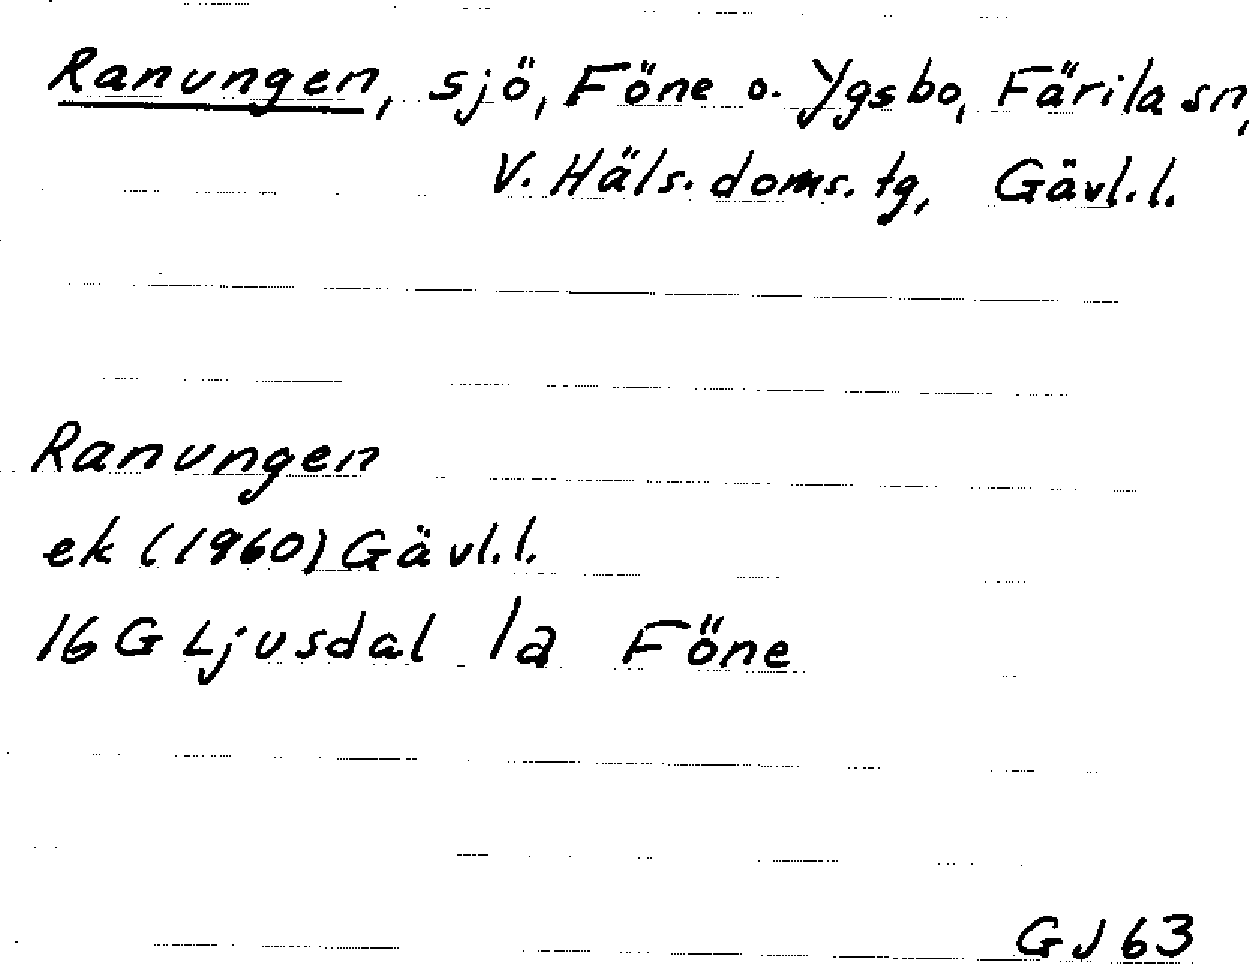 Ranungen, sjö, Föne o. Ygsbo, Färila sn,
V. Häls. doms. tg, Gävl. l.
Ranungen
ek (1960) Gävl. l.
16 G Ljusdal 1a Föne
GJ 63